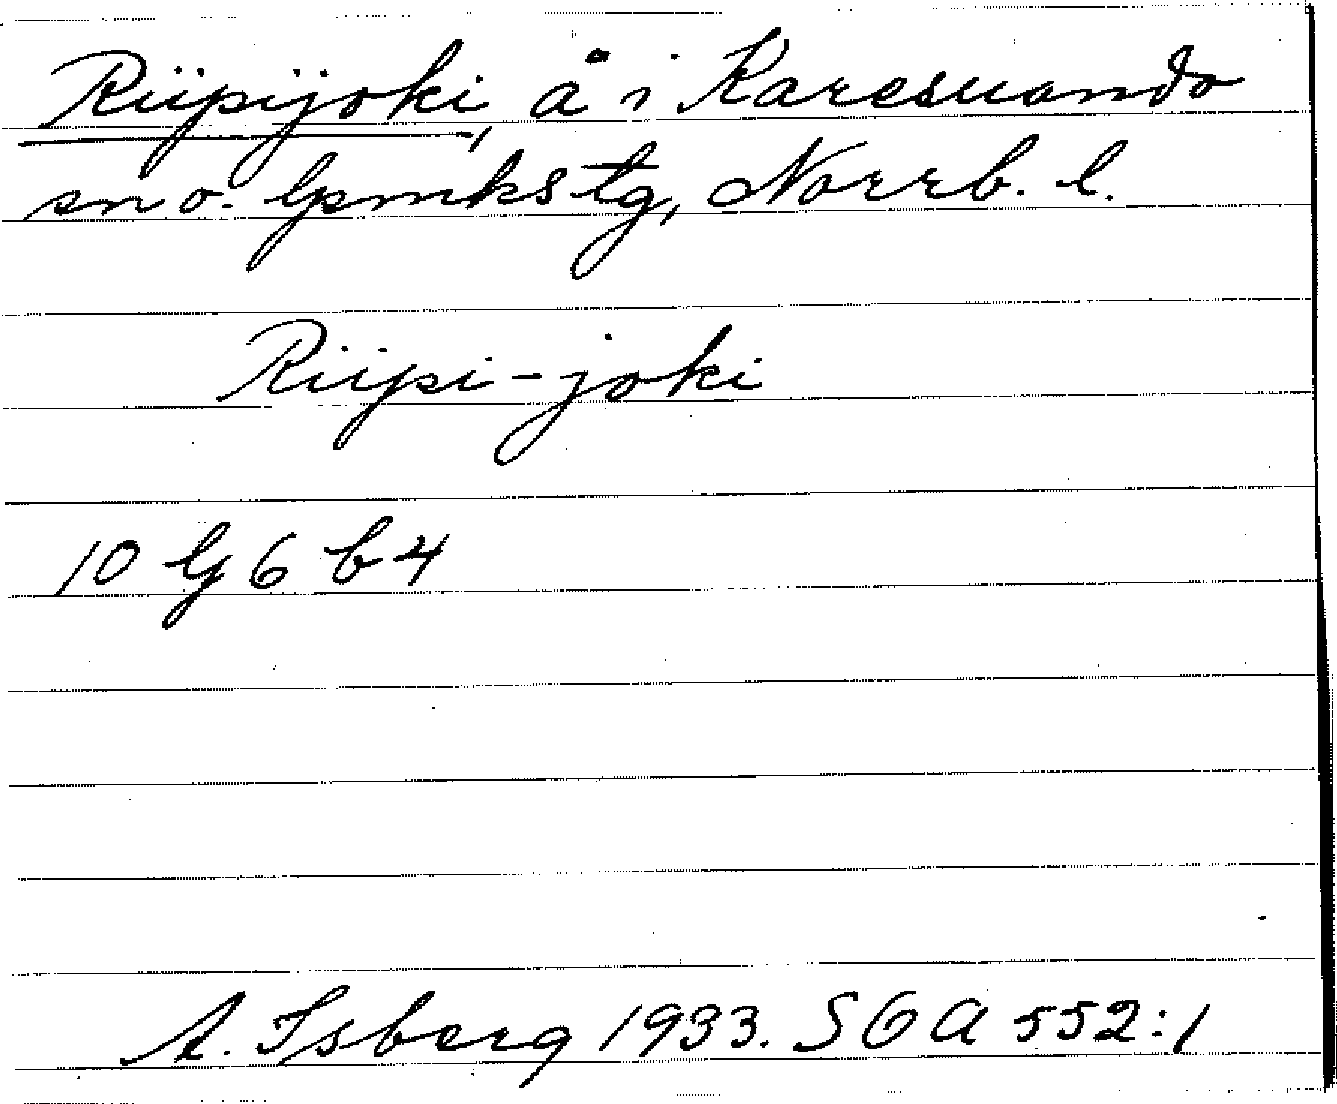 Riipijoki, å i Karesuando
sn o. lpmkstg, Norrb. l.
Riipi-joki
10 G 6 b 4
A. Isberg 1933. SOA 552:1